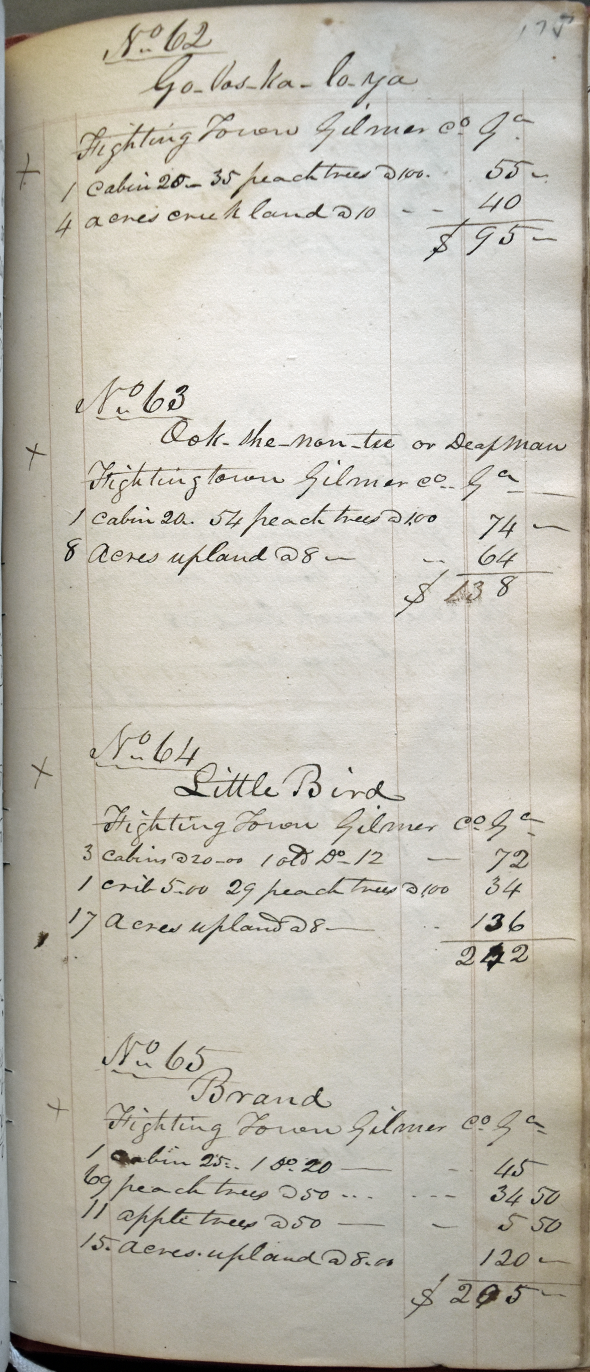 175
No. 62
Go-las-ka-lo-ya
Fighting Town Gilmer Co Ga
1 cabin 20- 35 peach trees @ 100. 55 -
4 acres creek land @ 10 - - 40
$ 95 -
No. 63
Ook-the-non-tee or Deaf Man
Fightingtown Gilmer co. Ga
1 cabin 20. 54 peach trees @ 100 74 -
8 Acres upland @ 8 - - 64
$ 138
No. 64
Little Bird
Fighting Town Gilmer Co Ga
3 cabins @ 20-00 1 old Do- 12 - 72
1 crib 5-00 29 peach trees @ 100 34
17 Acres upland @ 8 - .. 136
242
No. 65
Brand
Fighting Town Gilmer Co Ga
1 cabin 25.. 1 do. 20 - - 45
69 peach trees @ 50 ... ... 34 50
11 apple trees @ 50 - - 5 50
15. acres upland @ 8.00 120 -
$ 205 -